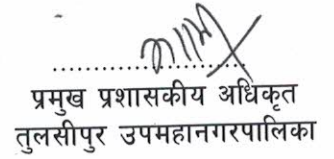 ....................
प्रमुख प्रशासकीय अधिकृत
तुलसीपुर उपमहानगरपालिका